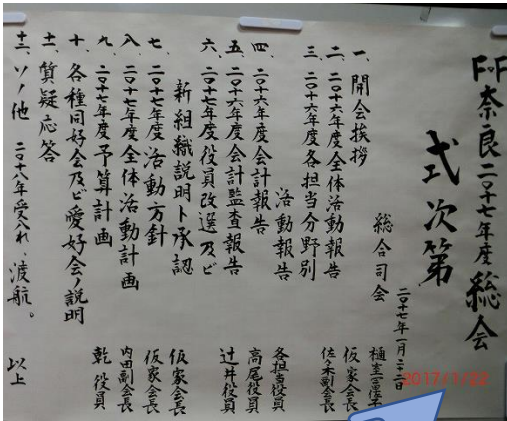 FF奈良二〇一七年度総会
式次第
二〇一七年一月二十二日
総合司会
一、開会挨拶 仮家会長
二、二〇一六年度全体活動報告 佐々木副会長
三、二〇一六年度各担当分野別
活動報告 各担当役員
四、二〇一六年度会計報告 高尾役員
五、二〇一六年度会計監査報告 辻井役員
六、二〇一七年度役員改選及ビ
新組織説明ト承認 仮家会長
七、二〇一七年度活動方針 仮家会長
八、二〇一七年度全体活動計画 内田副会長
九、二〇一七年度予算計画 乾役員
十、各種同好会及ビ愛好会ノ説明
十一、質疑応答
十二、ソノ他 二〇一八年受入れ、渡航。 以上
2017/1/22